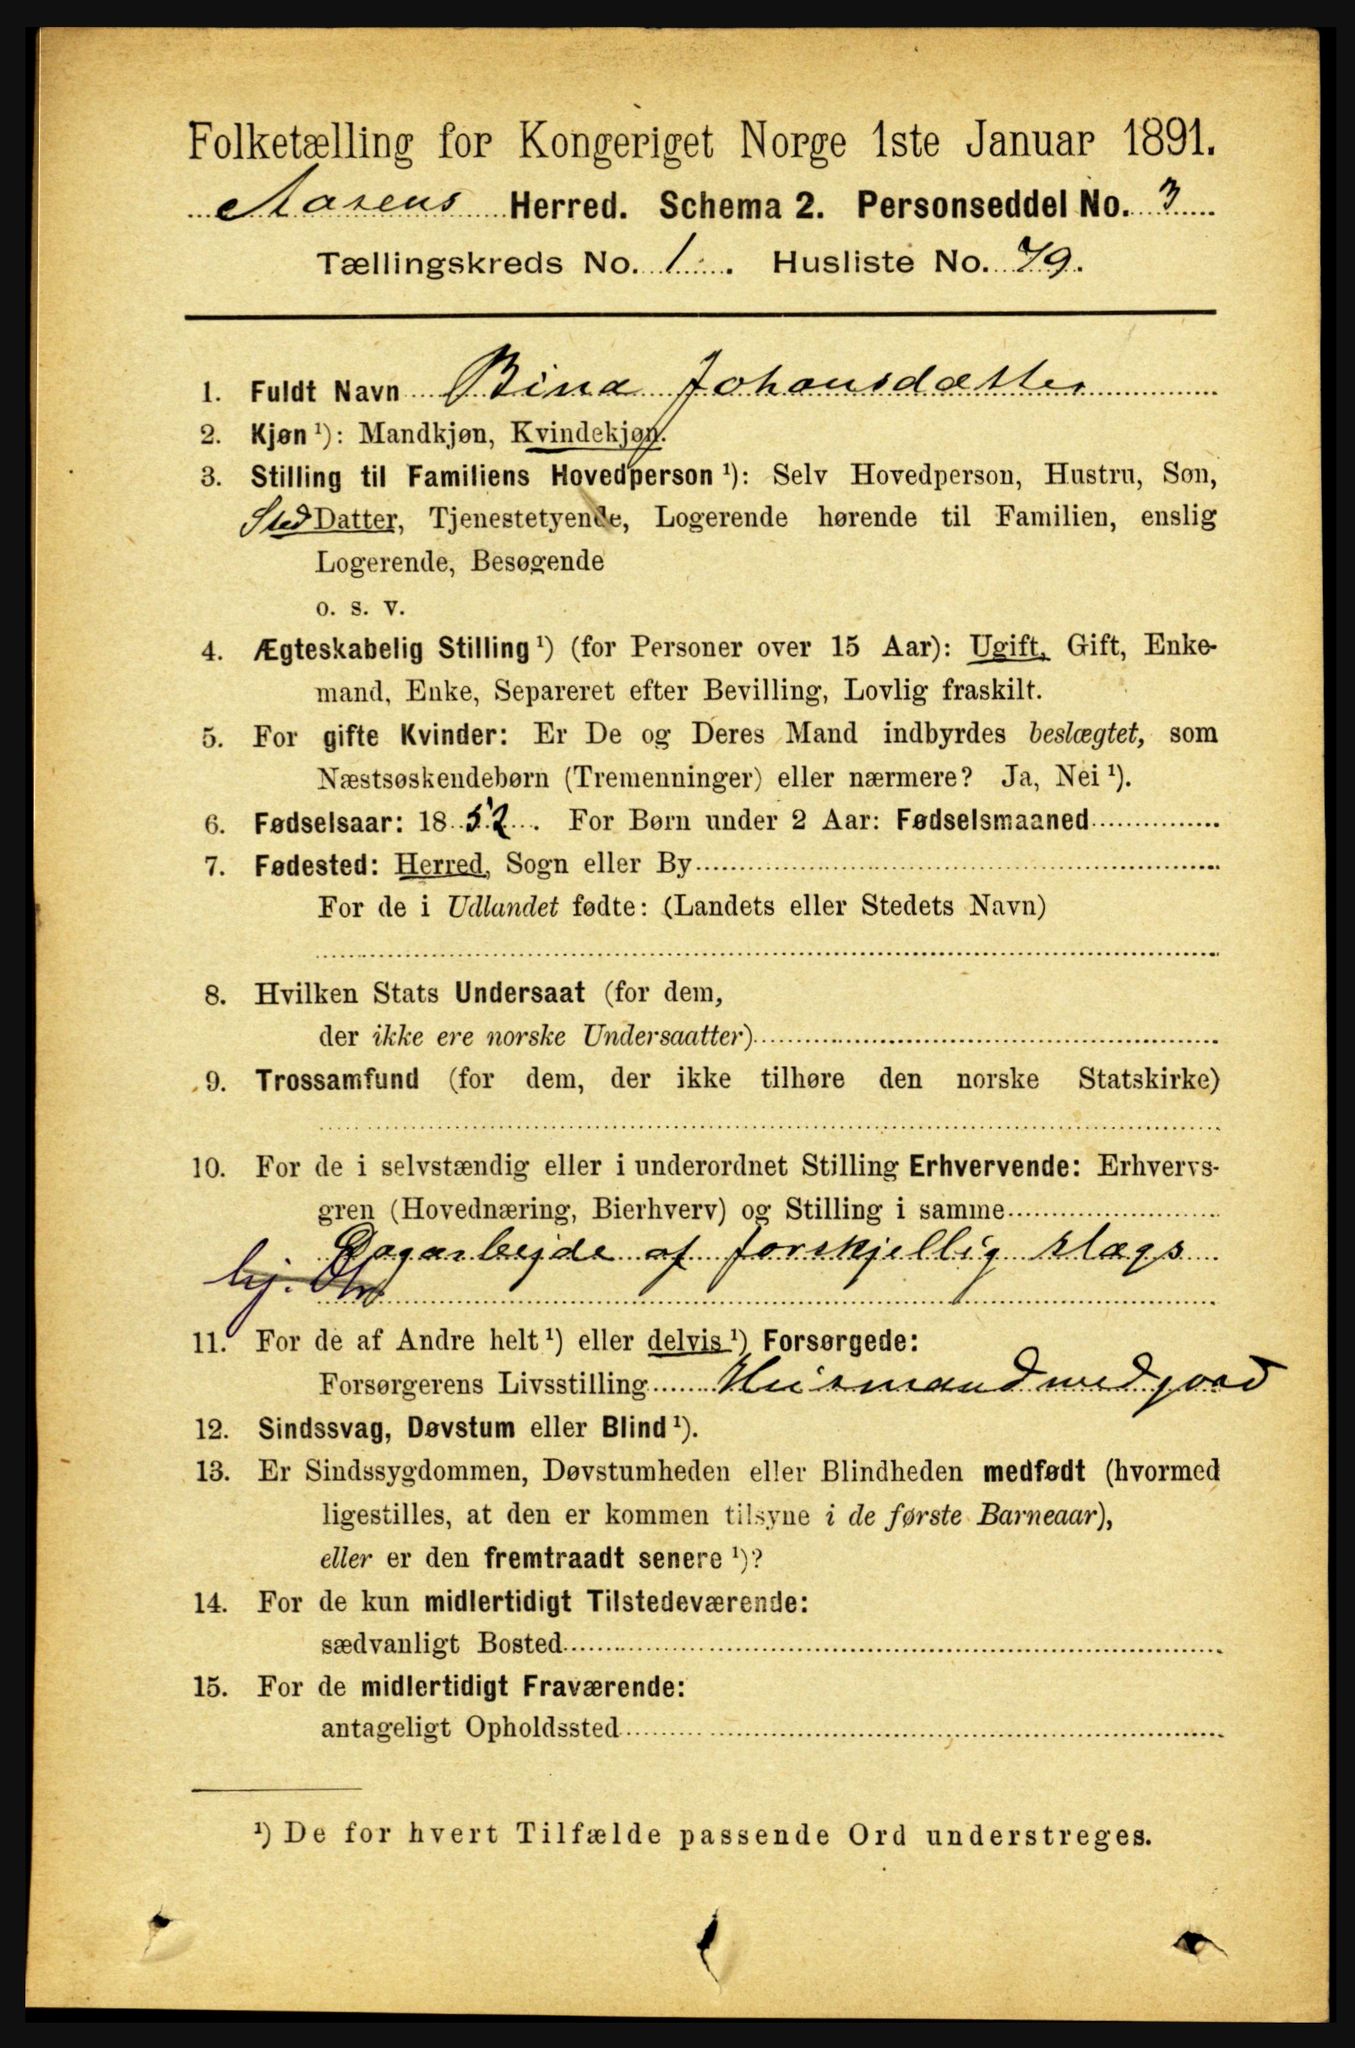 Folketælling for Kongeriget Norge 1ste Januar 1891.
Aasens Herred. Schema 2. Personseddel No. 3
Tællingskreds No. 1. Husliste No. 79.
1. Fuldt Navn Bina Johansdatter
2. Kjøn ¹): Mandkjøn, Kvindekjøn.
3. Stilling til Familiens Hovedperson ¹): Selv Hovedperson, Hustru, Søn,
Sted Datter, Tjenestetyende, Logerende hørende til Familien, enslig
Logerende, Besøgende
o. s. v.
4. Ægteskabelig Stilling ¹) (for Personer over 15 Aar): Ugift, Gift, Enke-
mand, Enke, Separeret efter Bevilling, Lovlig fraskilt.
5. For gifte Kvinder: Er De og Deres Mand indbyrdes beslægtet, som
Næstsøskendebørn (Tremenninger) eller nærmere? Ja, Nei ¹).
6. Fødselsaar: 1852. For Børn under 2 Aar: Fødselsmaaned
7. Fødested: Herred, Sogn eller By
For de i Udlandet fødte: (Landets eller Stedets Navn)
8. Hvilken Stats Undersaat (for dem,
der ikke ere norske Undersaatter)
9. Trossamfund (for dem, der ikke tilhøre den norske Statskirke)
10. For de i selvstændig eller i underordnet Stilling Erhvervende: Erhvervs-
gren (Hovednæring, Bierhverv) og Stilling i samme
Dagarbejde af forskjellig slags
hj.
11. For de af Andre helt ¹) eller delvis ¹) Forsørgede:
Forsørgerens Livsstilling Husmand med jord
12. Sindssvag, Døvstum eller Blind ¹).
13. Er Sindssygdommen, Døvstumheden eller Blindheden medfødt (hvormed
ligestilles, at den er kommen tilsyne i de første Barneaar),
eller er den fremtraadt senere ¹)?
14. For de kun midlertidigt Tilstedeværende:
sædvanligt Bosted
15. For de midlertidigt Fraværende:
antageligt Opholdssted
¹) De for hvert Tilfælde passende Ord understreges.